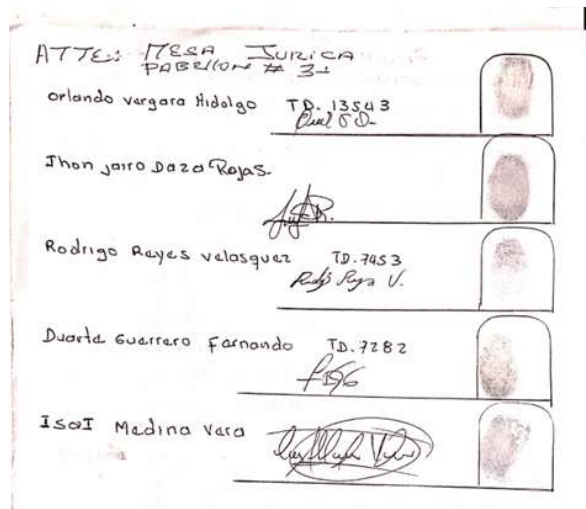 ATTE: MESA JURICA
PABELLON # 3-
Orlando vergara Hidalgo TD. 13543
Jhon jairo Daza Rojas.
Rodrigo Reyes velasquez TD. 7453
Rodj Reya V.
Duarte Guerrero Fernando TD. 7282
IsaI Medina Vera